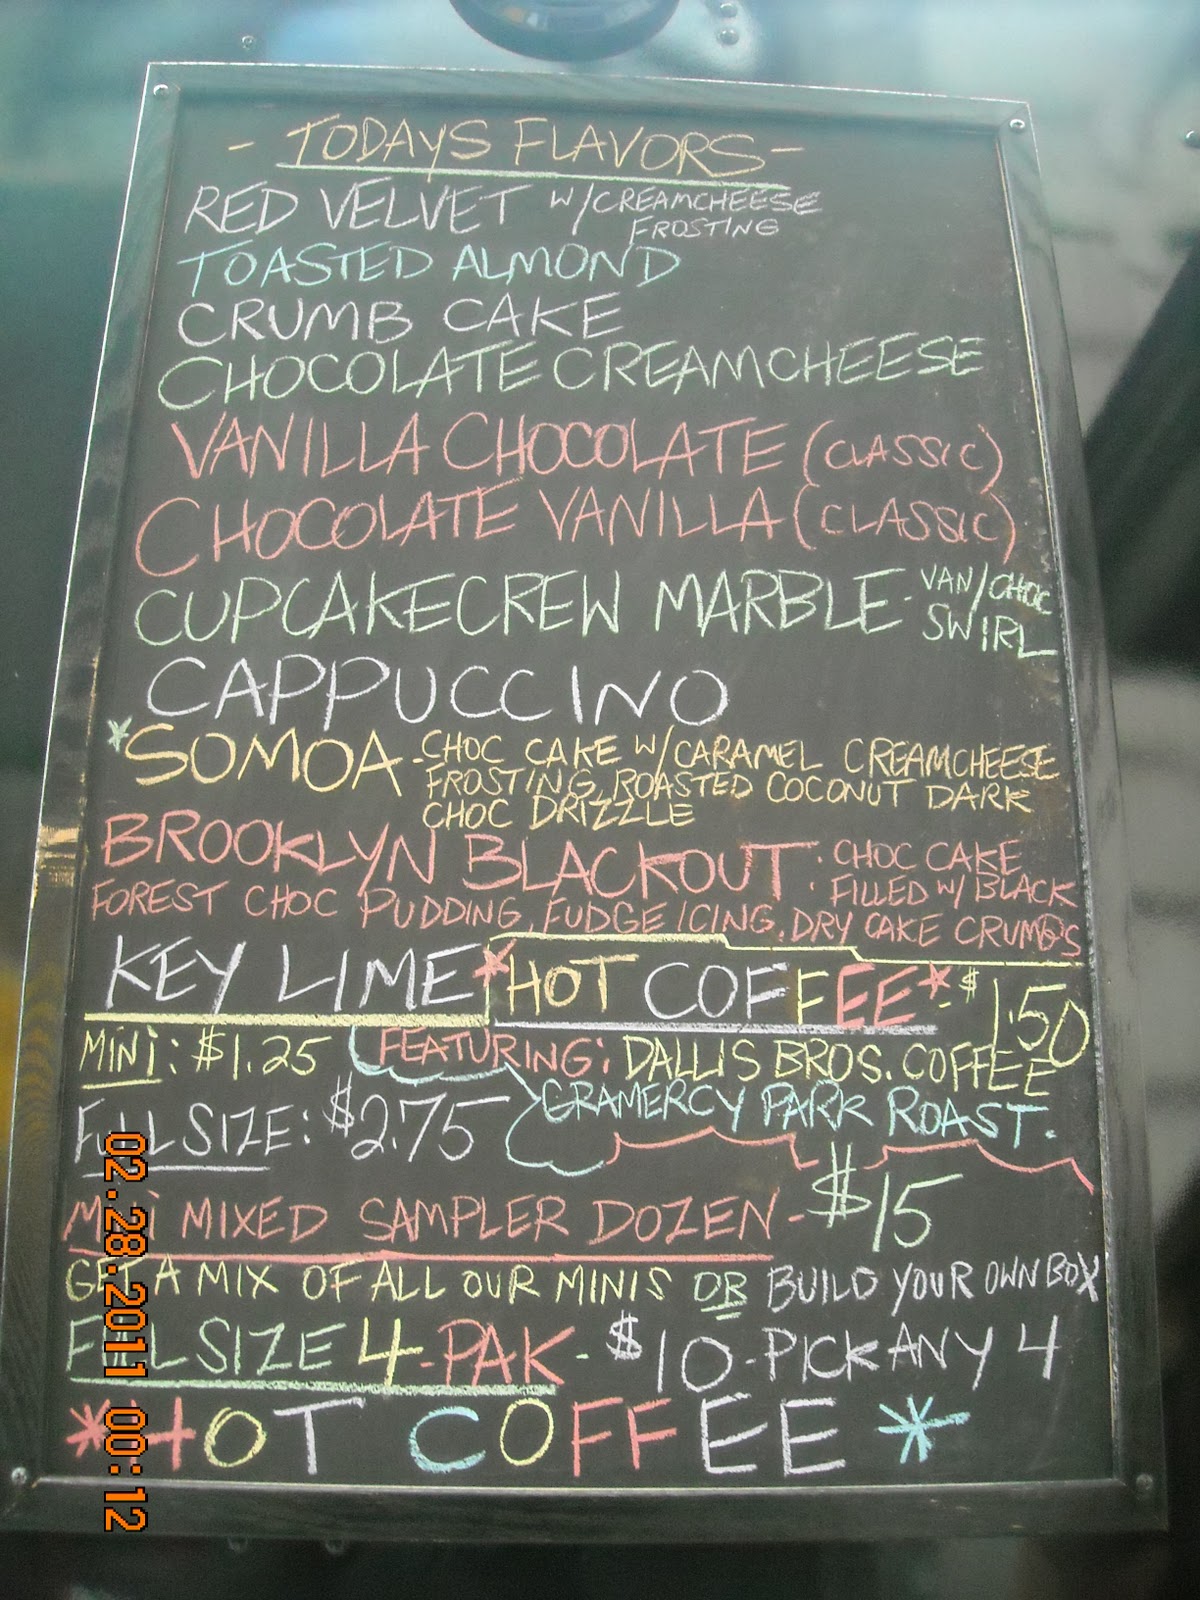 - TODAYS FLAVORS -
RED VELVET W/CREAMCHEESE
FROSTING
TOASTED ALMOND
CRUMB CAKE
CHOCOLATE CREAMCHEESE
VANILLA CHOCOLATE (CLASSIC)
CHOCOLATE VANILLA (CLASSIC)
CUPCAKECREW MARBLE - VAN/CHOC
SWIRL
CAPPUCCINO
*SOMOA - CHOC CAKE W/CARAMEL CREAMCHEESE
FROSTING, ROASTED COCONUT DARK
CHOC DRIZZLE
BROOKLYN BLACKOUT: CHOC CAKE
FILLED W/ BLACK
FOREST CHOC PUDDING, FUDGE ICING, DRY CAKE CRUMBS
KEY LIME *HOT COFFEE* - $1.50
MINI: $1.25 FEATURING: DALLIS BROS. COFFEE
GRAMERCY PARK ROAST.
FULL SIZE: $2.75
MINI MIXED SAMPLER DOZEN - $15
GET A MIX OF ALL OUR MINIS OR BUILD YOUR OWN BOX
FULL SIZE 4-PAK - $10 - PICK ANY 4
*HOT COFFEE *
02.28.2011 00:12